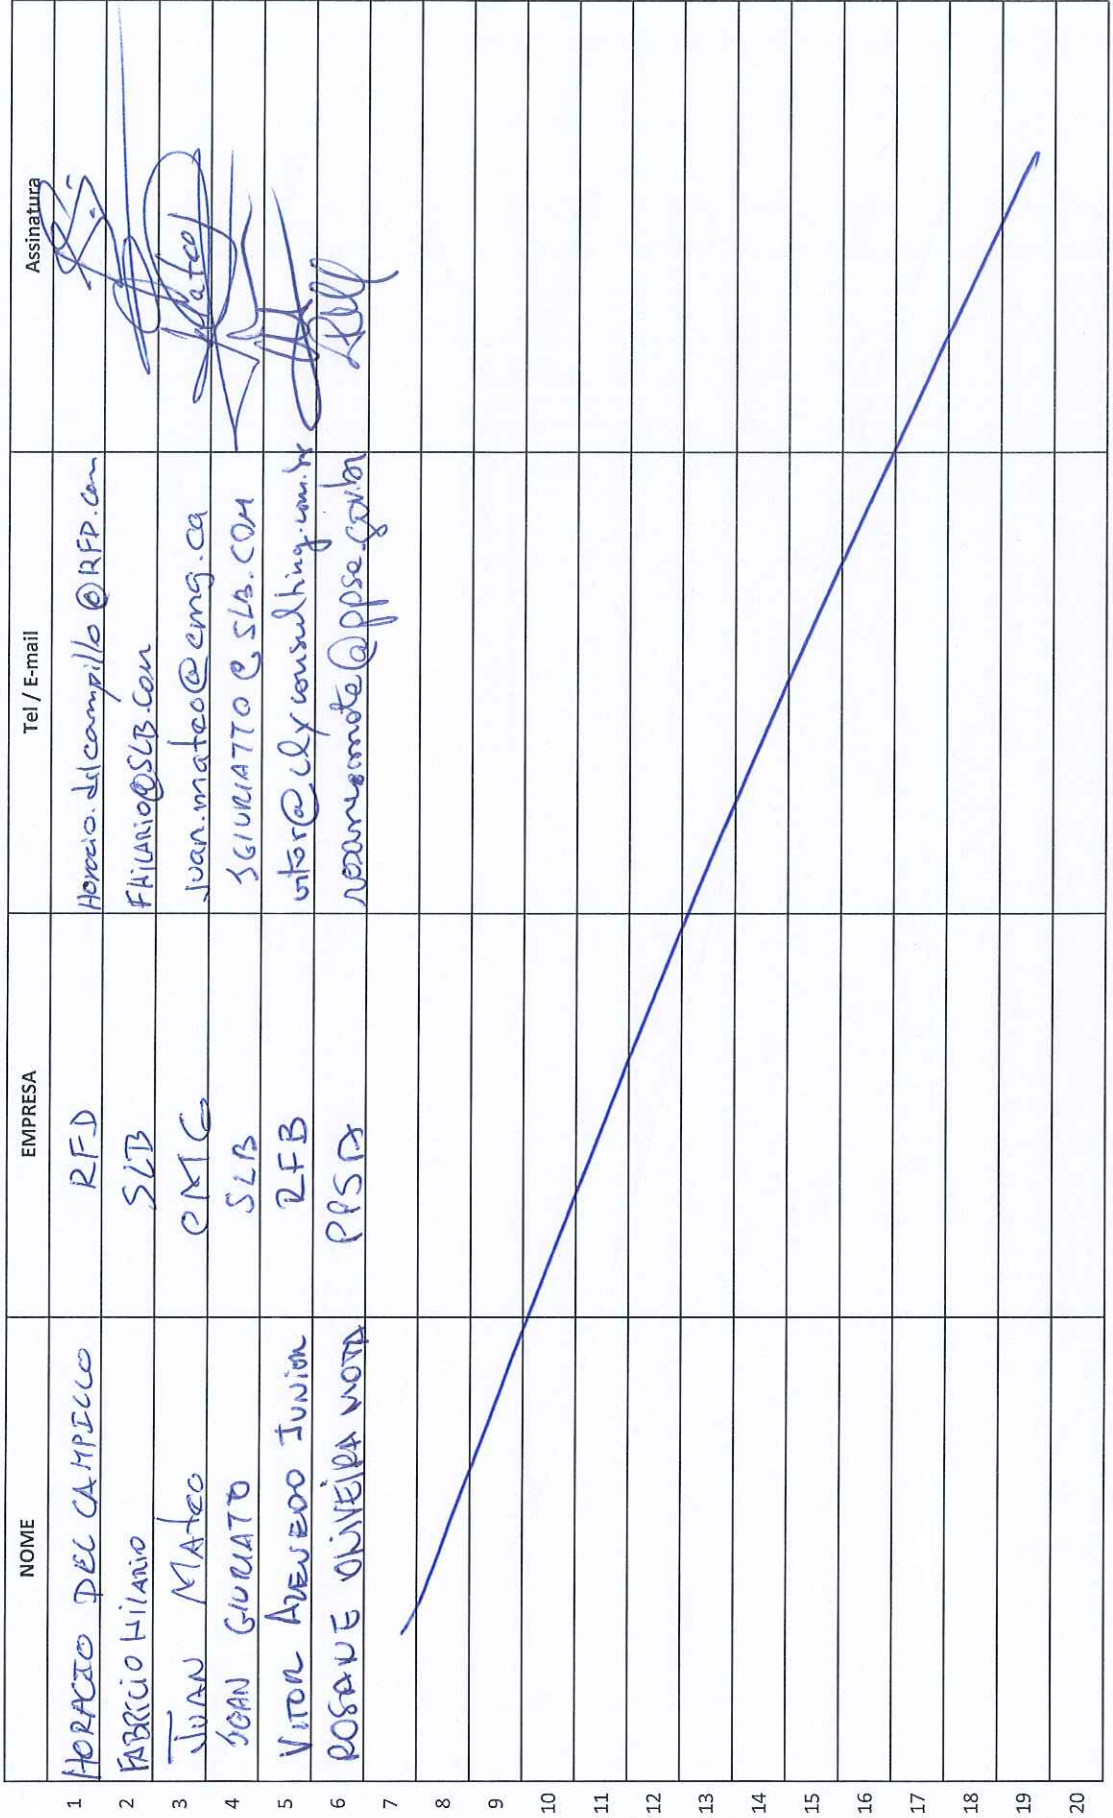 NOME EMPRESA Tel / E-mail Assinatura
1 HORACIO DEL CAMPILLO RFD Horacio.delcampillo@RFD.com
2 FABRÍCIO HILARIO SLB FHILARIO@SLB.com
3 JUAN MATEO CMG juan.mateo@cmg.ca JMateo
4 JEAN GIURIATO SLB JGIURIATTO@SLB.COM
5 VITOR AZEVEDO JUNIOR RFB vitor@clxconsulting.com.br
6 ROSANE OLIVEIRA MOTA PPSA rosanemota@ppsa.gov.br
7
8
9
10
11
12
13
14
15
16
17
18
19
20